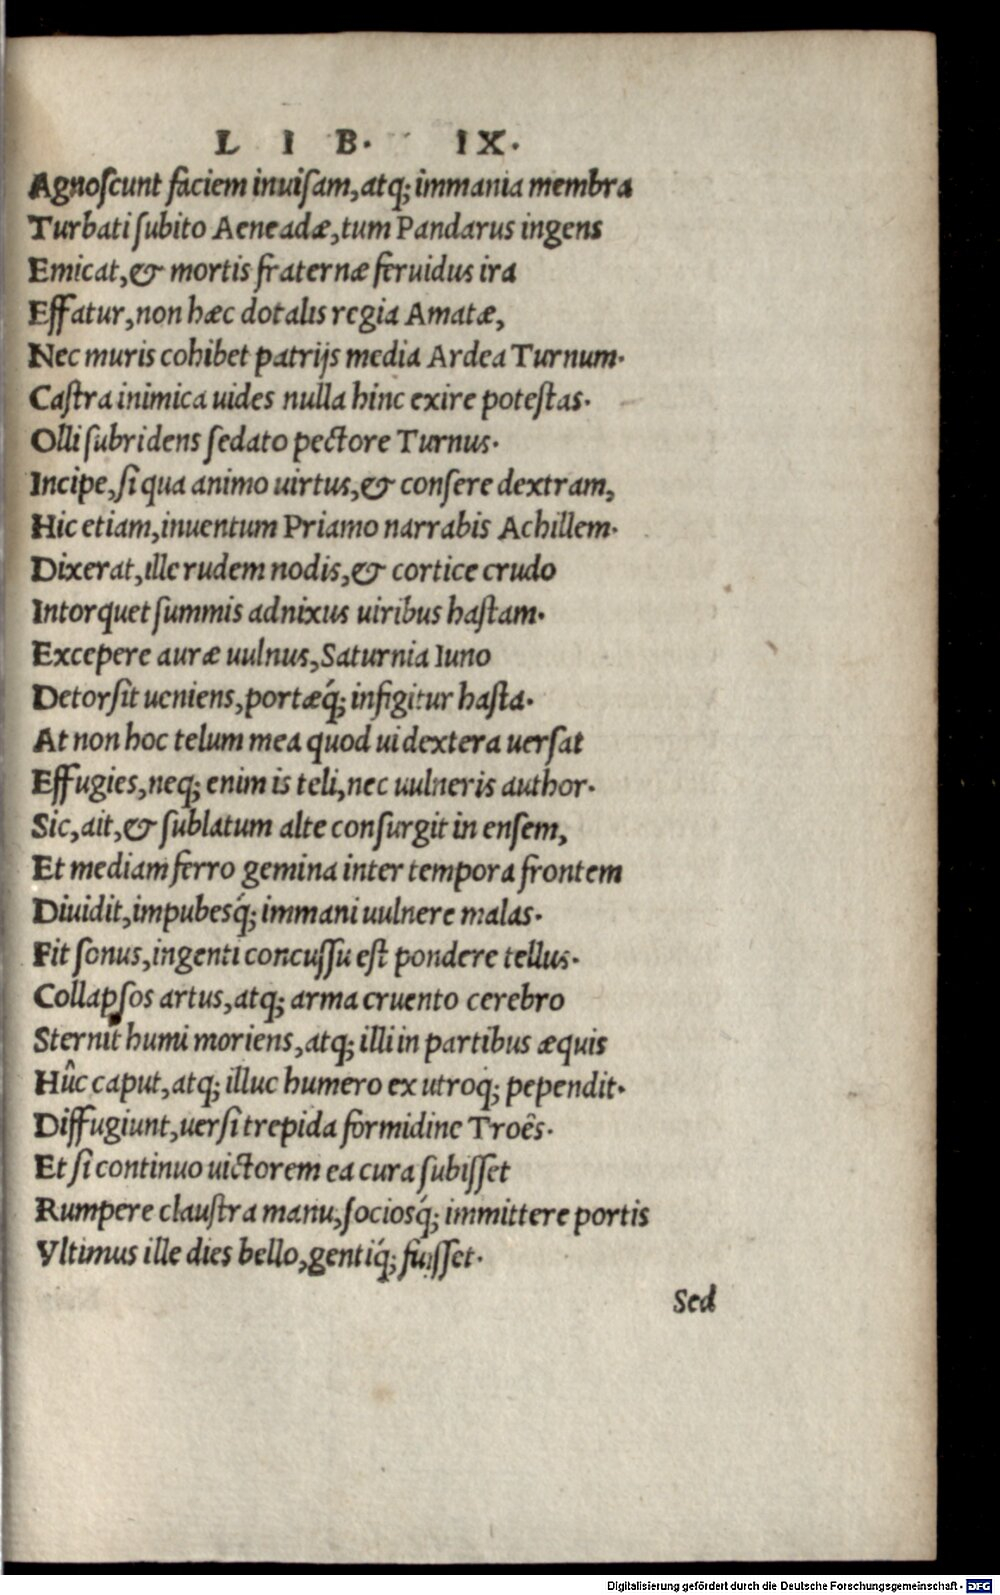 LIB. IX.
Agnoſcunt faciem inuiſam, atq; immania membra
Turbati ſubito Aeneadæ, tum Pandarus ingens
Emicat, & mortis fraternæ feruidus ira
Effatur, non hæc dotalis regia Amatæ,
Nec muris cohibet patrijs media Ardea Turnum.
Caſtra inimica uides nulla hinc exire poteſtas.
Olli ſubridens ſedato pectore Turnus.
Incipe, ſi qua animo uirtus, & conſere dextram,
Hic etiam, inuentum Priamo narrabis Achillem.
Dixerat, ille rudem nodis, & cortice crudo
Intorquet ſummis adnixus uiribus haſtam.
Excepere auræ uulnus, Saturnia Iuno
Detorſit ueniens, portæq́; infigitur haſta.
At non hoc telum mea quod ui dextera uerſat
Effugies, neq; enim is teli, nec uulneris author.
Sic, ait, & ſublatum alte conſurgit in enſem,
Et mediam ferro gemina inter tempora frontem
Diuidit, impubesq́; immani uulnere malas.
Fit ſonus, ingenti concuſſu eſt pondere tellus.
Collapſos artus, atq; arma cruento cerebro
Sternit humi moriens, atq; illi in partibus æquis
Hûc caput, atq; illuc humero ex utroq; pependit.
Diffugiunt, uerſi trepida formidine Troês.
Et ſi continuo uictorem ea cura ſubiſſet
Rumpere clauſtra manu, ſociosq́; immittere portis
Vltimus ille dies bello, gentiq́; fuiſſet.
Sed
Digitalisierung gefördert durch die Deutsche Forschungsgemeinschaft - DFG